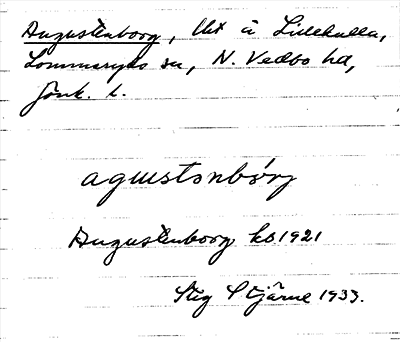 Augustenborg, lht å Lillekulla,
Lommaryds sn, N. Vedbo hd,
Jönk. l.
agustonbórj
Augustenborg ks 1921
Stig Stjärne 1933.